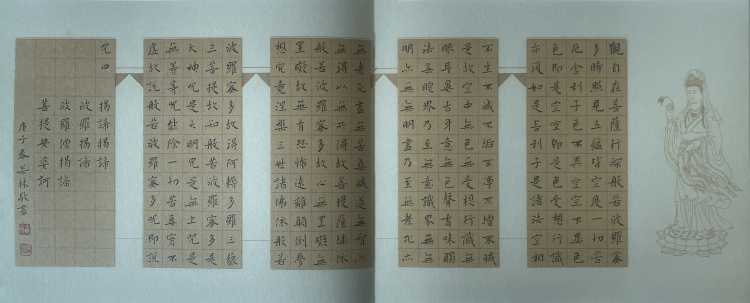 觀自在菩薩行深般若波羅蜜
多時照見五蘊皆空度一切苦
厄舍利子色不異空空不異色
色即是空空即是色受想行識
亦復如是舍利子是諸法空相
不生不滅不垢不淨不增不減
是故空中無色無受想行識無
眼耳鼻舌身意無色聲香味觸
法無眼界乃至無意識界無無
明亦無無明盡乃至無老死亦
無老死盡無苦集滅道無智亦
無得以無所得故菩提薩埵依
般若波羅蜜多故心無罣礙無
罣礙故無有恐怖遠離顛倒夢
想究竟涅槃三世諸佛依般若
波羅蜜多故得阿耨多羅三藐
三菩提故知般若波羅蜜多是
大神咒是大明咒是無上咒是
無等等咒能除一切苦真實不
虛故說般若波羅蜜多咒即說
咒曰
揭諦揭諦
波羅揭諦
波羅僧揭諦
菩提娑婆訶
庚子春